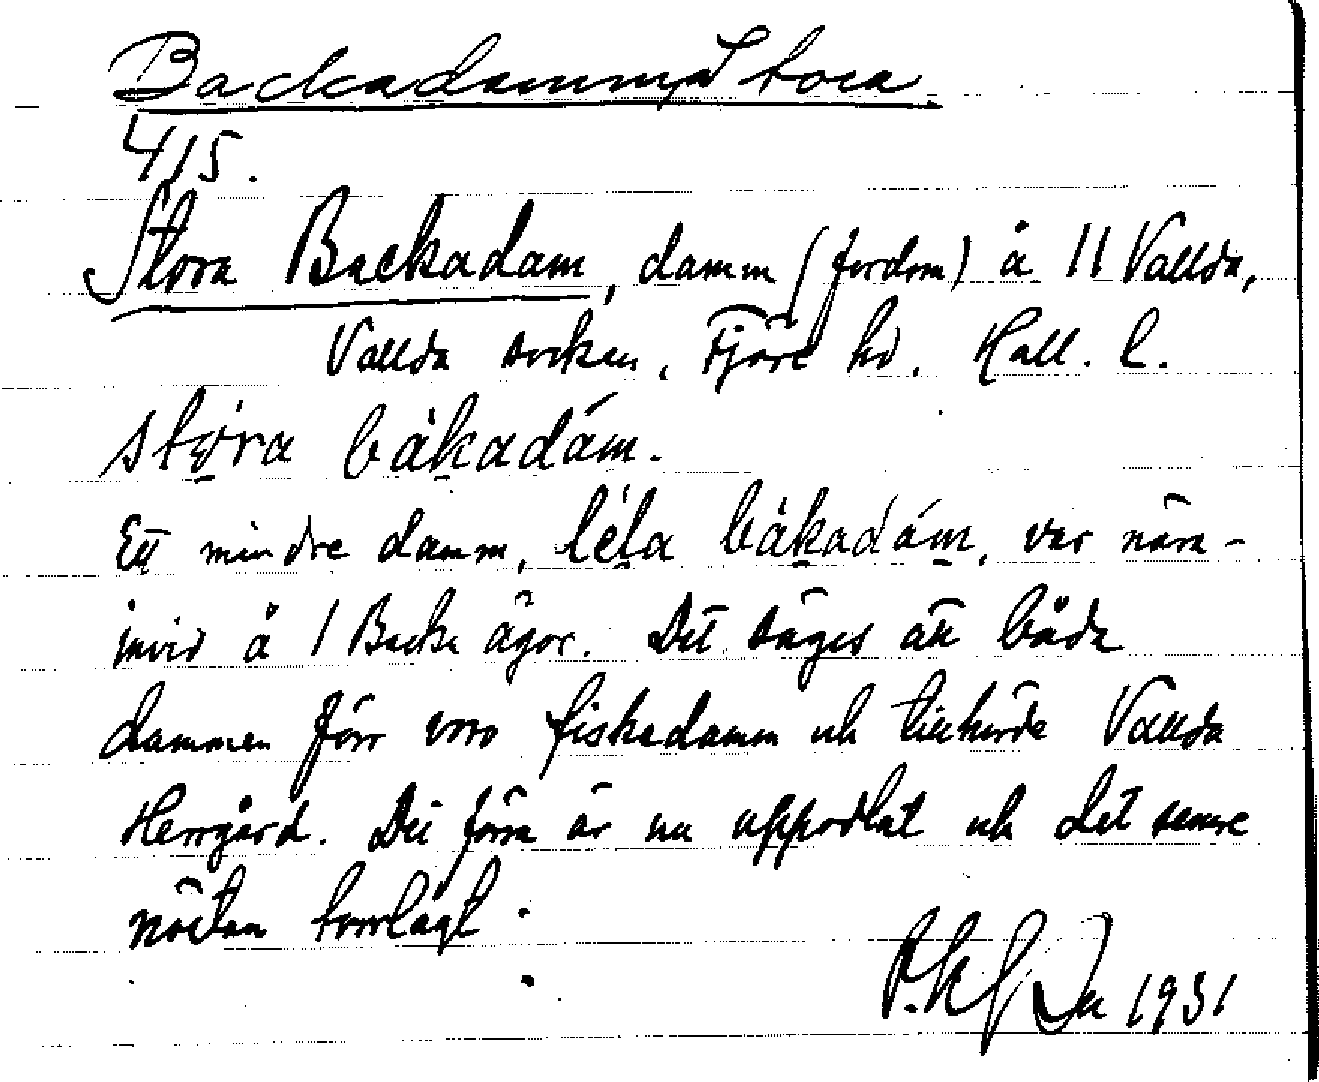 Backadamm, Stora.
415.
Stora Backadam, damm (fordom) å 11 Vallda,
Vallda socken, Fjäre hd. Hall. l.
stǫ́ra bàkadám.
Ett mindre damm, léla bàkadám, var nära-
invid å 1 Backe ägor. Det säges att båda
dammen förr voro fiskedamm och tillhörde Vallda
Herrgård. Det förra är nu uppodlat och det senare
nästan torrlagt.
1931